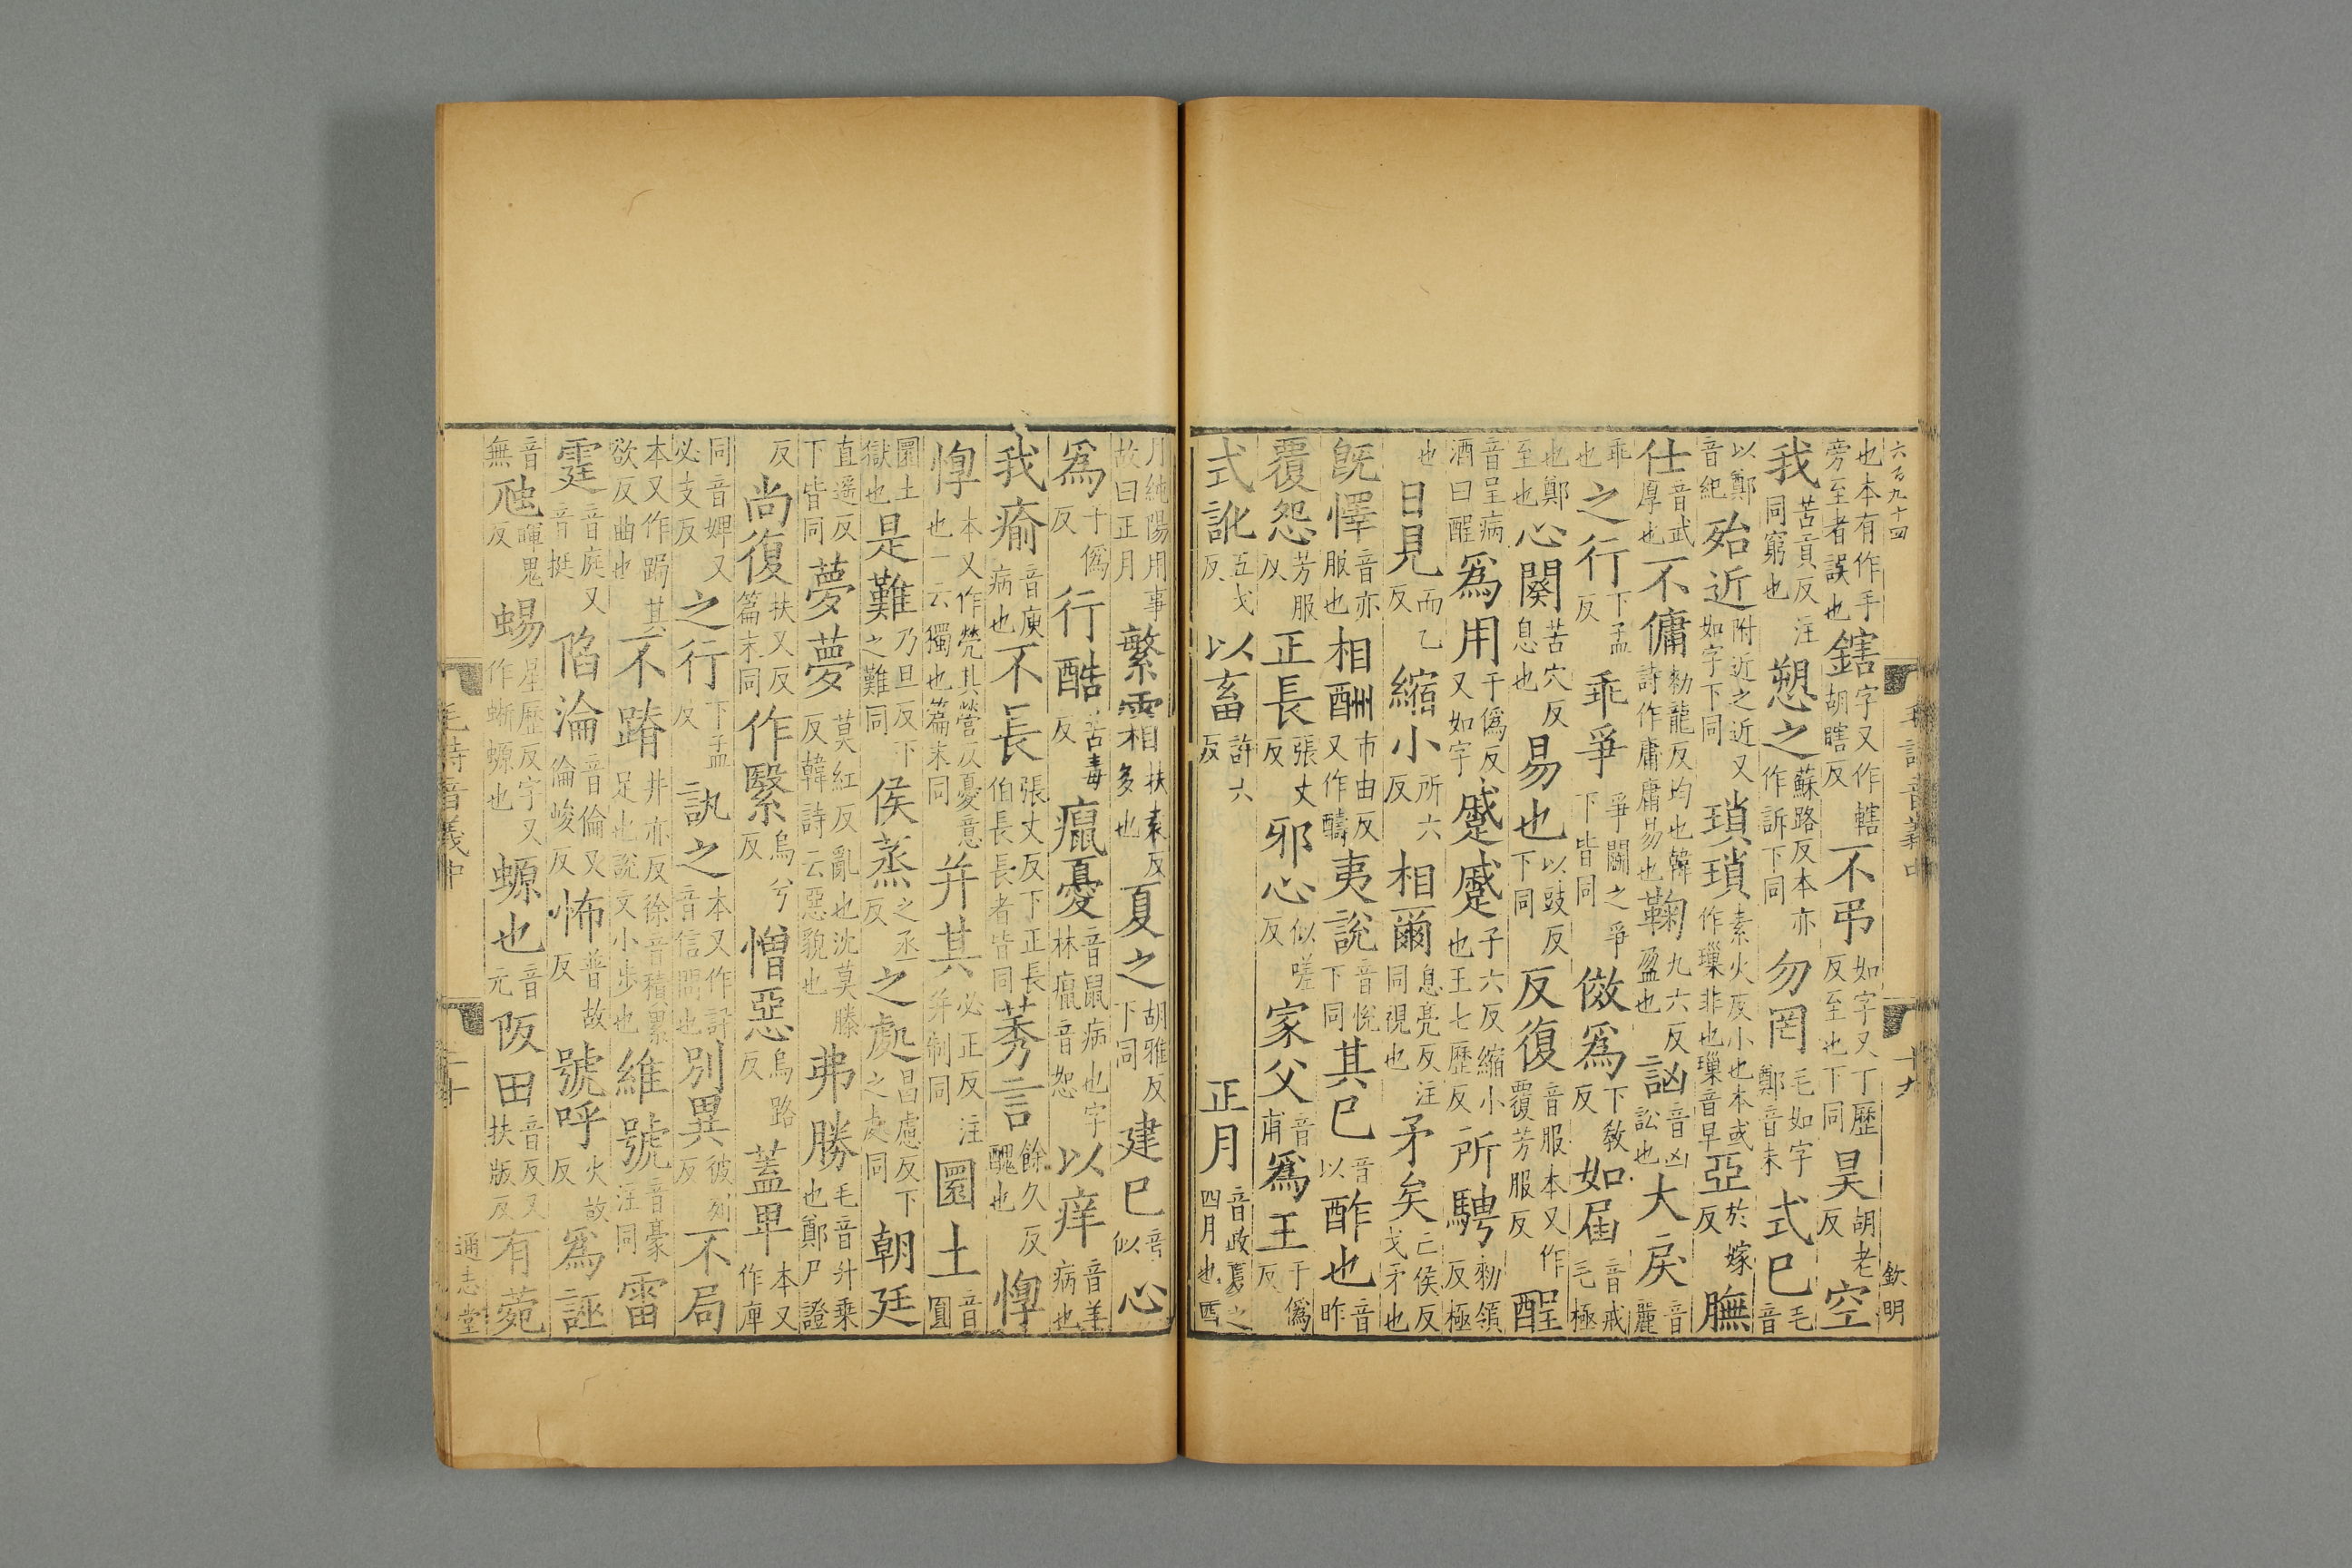 六百九十四 欽明
也本有作手旁至者誤也鎋字又作轄胡瞎反不弔如字又丁歷反至也下同昊胡老反空
我苦貢反注同窮也愬之蘇路反本亦作訴下同勿罔毛如字鄭音末式已毛音
以鄭音紀殆近附近之近又如字下同瑣瑣素火反小也本或作璅非也璅音早亞於嫁反膴
仕音武厚也不傭勑龍反均也韓詩作庸庸易也鞠九六反盈也訩音凶訟也大戾音麗
乖也之行下孟反乖爭爭鬭之爭下皆同傚爲下教反如屆音戒毛極
也鄭至也心闋苦穴反息也易也以豉反下同反復音服本又作覆芳服反酲
音呈病酒曰酲爲用于僞反又如字蹙蹙子六反縮小也王七歷反所騁勑領反極
也日見而乙反縮小所六反相爾息亮反注同視也矛矣亡侯反戈矛也
旣懌音亦服也相酬市由反又作醻夷說音悅下同其已音以酢也音昨
覆怨芳服反正長張丈反邪心似嗟反家父音甫爲王于僞反
式訛五戈反以畜許六反正月音政夏之四月也酉
毛詩音義中 十九
月純陽用事故曰正月繁霜扶袁反多也夏之胡雅反下同建巳音似心
爲于僞反行酷苦毒反癙憂音鼠病也字林癙音恕以痒音羊病也
我瘉音庾病也不長張丈反下正長伯長長者皆同莠言餘久反醜也惸
惸本又作煢其營反憂意也一云獨也篇末同并其必正反注并制同圜土音圓
圜土獄也是難乃旦反下之難同侯蒸之丞反之處昌慮反下之處同朝廷
直遥反下皆同夢夢莫紅反亂也沈莫滕反韓詩云惡貌也弗勝毛音升乗也鄭尸證
反尚復扶又反篇末同作繄烏兮反憎惡烏路反蓋卑本又作庳
同音婢又必支反之行下孟反訊之本又作訊音信問也別異彼列反不局
本又作跼其欲反曲也不蹐井亦反徐音積累足也說文小步也維號音豪注同雷
霆音庭又音挺陷淪音倫又倫峻反怖普故反號呼火故反爲誣
音無虺暉鬼反蜴星歷反字又作蜥螈也螈也音元阪田音反又扶版反有菀
毛詩音義中 二十 通志堂